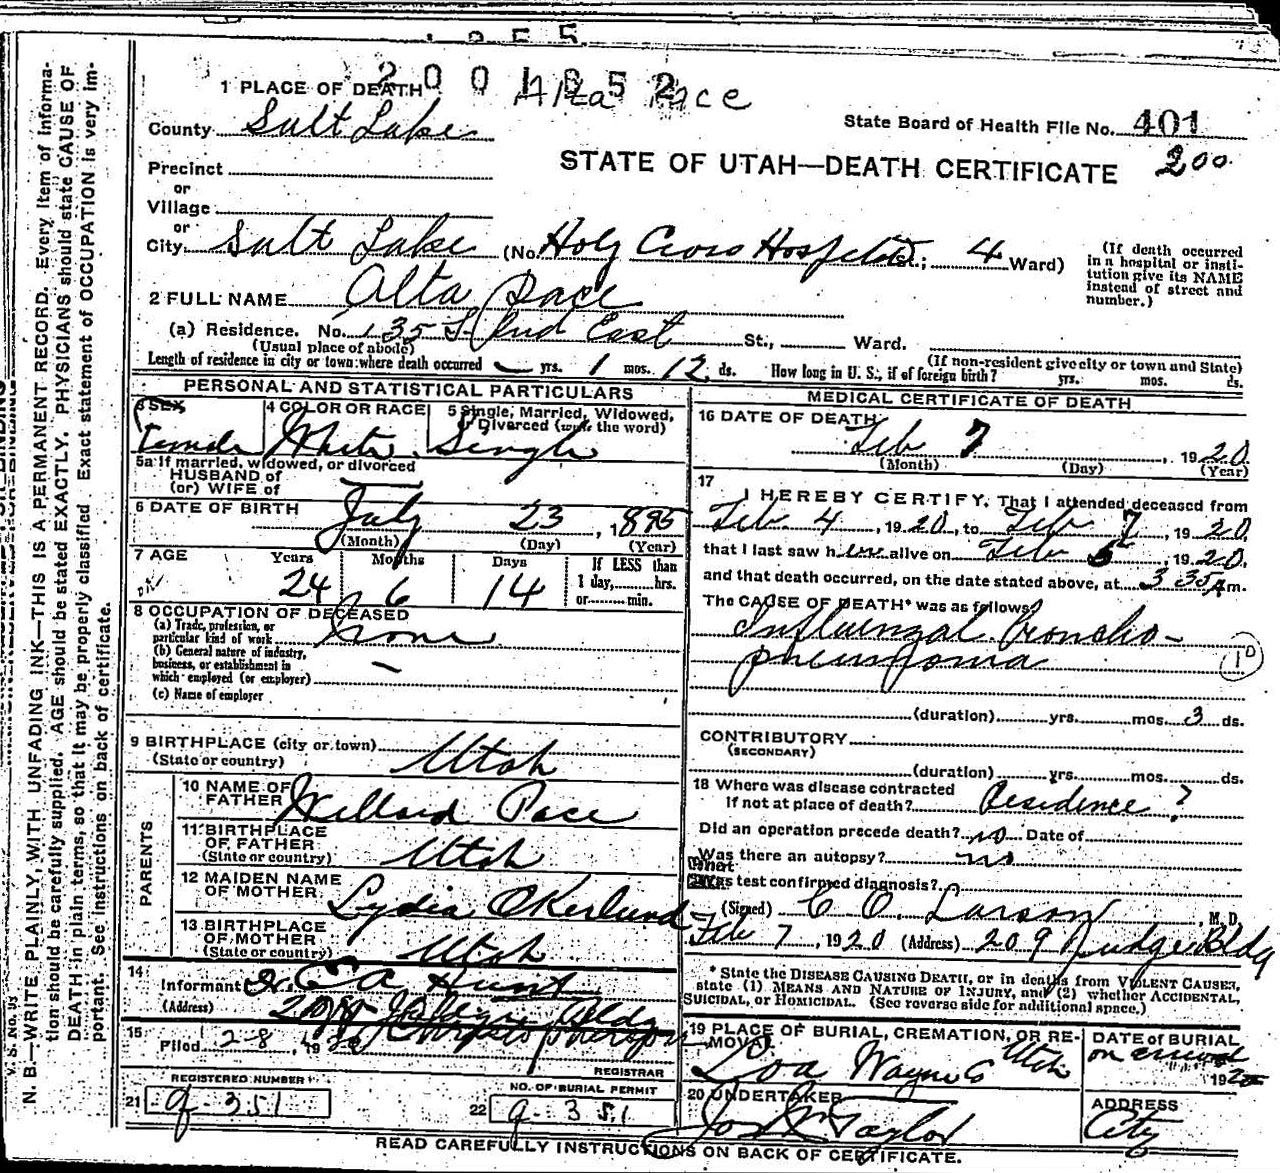 2001852 Alta Pace
1 PLACE OF DEATH
County Salt Lake
State Board of Health File No. 401
200
STATE OF UTAH—DEATH CERTIFICATE
Precinct
or
Village
or
City Salt Lake (No. Holy Cross Hospital St.; 4 Ward)
(If death occurred in a hospital or institution give its NAME instead of street and number.)
2 FULL NAME Alta Pace
(a) Residence. No. 135 S 2nd East St., Ward.
(Usual place of abode) (If non-resident give city or town and State)
Length of residence in city or town where death occurred — yrs. 1 mos. 12 ds. How long in U. S., if of foreign birth? yrs. mos. ds.
PERSONAL AND STATISTICAL PARTICULARS
3 SEX Female
4 COLOR OR RACE White
5 Single, Married, Widowed, Divorced (write the word) Single
5a If married, widowed, or divorced
HUSBAND of
(or) WIFE of
6 DATE OF BIRTH July 23, 1895
(Month) (Day) (Year)
7 AGE Years 24 Months 6 Days 14
If LESS than 1 day, hrs. or min.
8 OCCUPATION OF DECEASED
(a) Trade, profession, or particular kind of work None
(b) General nature of industry, business, or establishment in which employed (or employer) —
(c) Name of employer
9 BIRTHPLACE (city or town)
(State or country) Utah
PARENTS
10 NAME OF FATHER Willard Pace
11 BIRTHPLACE OF FATHER (State or country) Utah
12 MAIDEN NAME OF MOTHER Lydia Okerlund
13 BIRTHPLACE OF MOTHER (State or country) Utah
14
Informant Dr. C A Hunt
(Address)
15
Filed 2-8, 19
REGISTRAR
REGISTERED NUMBER
21 9-351
NO. OF BURIAL PERMIT
22 9-351
MEDICAL CERTIFICATE OF DEATH
16 DATE OF DEATH
Feb 7, 1920
(Month) (Day) (Year)
17
I HEREBY CERTIFY, That I attended deceased from
Feb 4, 1920, to Feb 7, 1920.
that I last saw her alive on Feb 5, 1920.
and that death occurred, on the date stated above, at 3 35 A m.
The CAUSE OF DEATH* was as follows:
Influenzal Broncho-
pneumonia
(duration) yrs. mos. 3 ds.
CONTRIBUTORY
(SECONDARY)
(duration) yrs. mos. ds.
18 Where was disease contracted
If not at place of death? Residence ?
Did an operation precede death? no Date of
Was there an autopsy? no
What test confirmed diagnosis?
(Signed) C O. Larson, M. D.
Feb 7, 1920 (Address) 209 Judge Bldg
* State the DISEASE CAUSING DEATH, or in deaths from VIOLENT CAUSES, state (1) MEANS AND NATURE OF INJURY, and (2) whether ACCIDENTAL, SUICIDAL, or HOMICIDAL. (See reverse side for additional space.)
19 PLACE OF BURIAL, CREMATION, OR REMOVAL
Loa Wayne Co Utah
DATE of BURIAL
on arrival
1920
20 UNDERTAKER
Jos Wm Taylor
ADDRESS
City
READ CAREFULLY INSTRUCTIONS ON BACK OF CERTIFICATE.
N. B.—WRITE PLAINLY, WITH UNFADING INK—THIS IS A PERMANENT RECORD. Every item of information should be carefully supplied. AGE should be stated EXACTLY. PHYSICIANS should state CAUSE OF DEATH in plain terms, so that it may be properly classified. Exact statement of OCCUPATION is very important. See instructions on back of certificate.